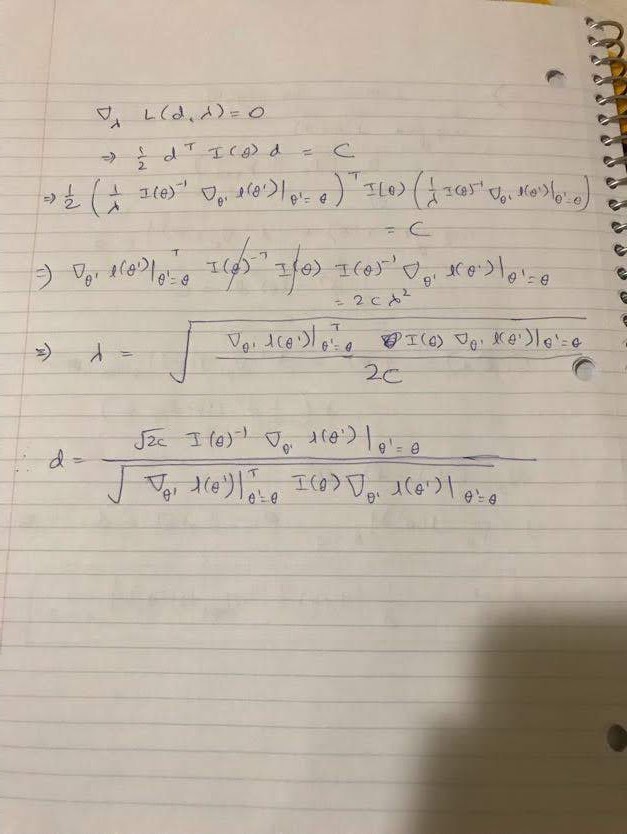 ∇_λ L(d, λ) = 0
⇒ ½ dᵀ I(θ) d = C
⇒ ½ (1/λ I(θ)⁻¹ ∇_θ' l(θ')|_θ'=θ)ᵀ I(θ) (1/λ I(θ)⁻¹ ∇_θ' l(θ')|_θ'=θ)
= C
⇒ ∇_θ' l(θ')|ᵀ_θ'=θ I(θ)⁻ᵀ I(θ) I(θ)⁻¹ ∇_θ' l(θ')|_θ'=θ
= 2cλ²
⇒ λ = √(∇_θ' l(θ')|ᵀ_θ'=θ I(θ) ∇_θ' l(θ')|_θ'=θ / 2C)
∴ d = √2c I(θ)⁻¹ ∇_θ' l(θ')|_θ'=θ / √(∇_θ' l(θ')|ᵀ_θ'=θ I(θ) ∇_θ' l(θ')|_θ'=θ)